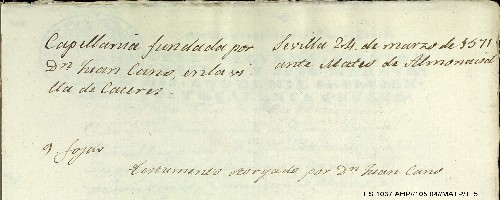 Capellania fundada por
Dn Juan Cano, en la vi
lla de Caceres.
Sevilla 24. de marzo de 1571
ante Mateo de Almonacid
9 fojas
Testamento otorgado por Dn Juan Cano